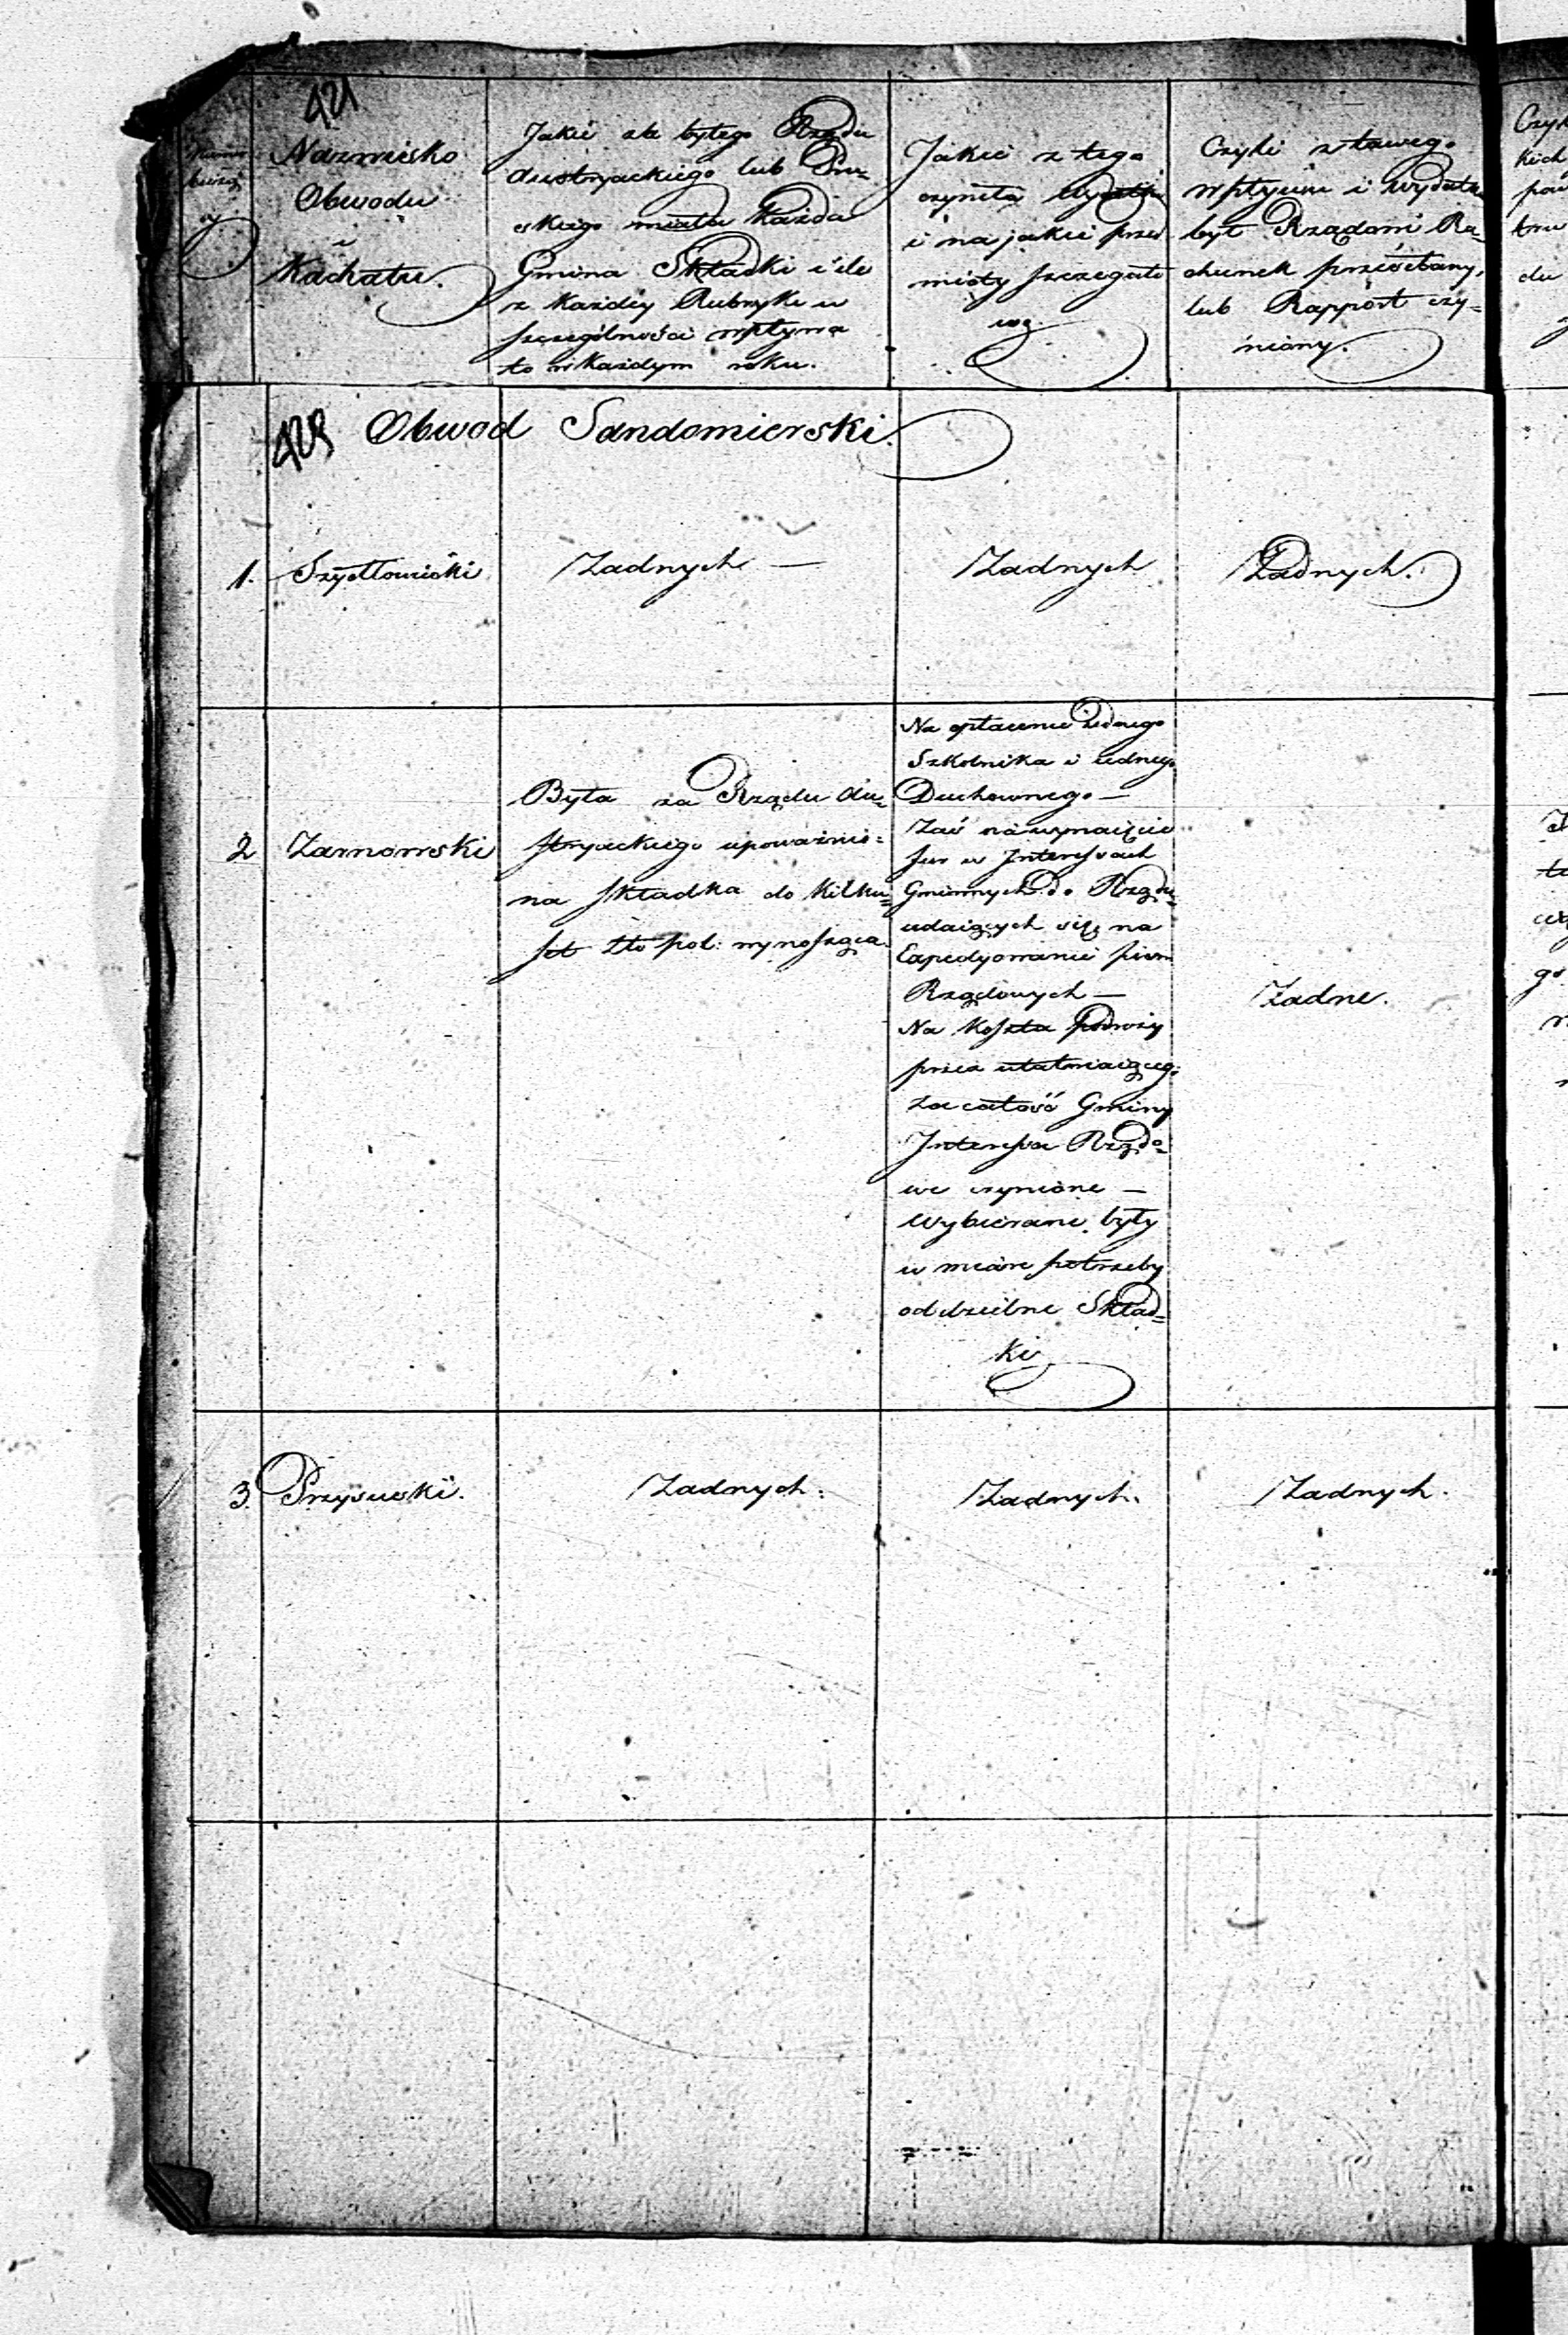 421
Nazwisko
Obwodu
i
Kachału.
Jakie za byłego Rządu
Austryackiego lub Pru-
skiego miała Każda
Gmina Składki i ile
z Każdey Rubryki w
szczególności wpływa
ło w każdym roku.
Jakie z tego
czyniła Wydatki
i na jakie przed
mioty szczegóło
we.
Czyli z tawego
wpływu i wydatku
był Rządowi Ra-
chunek przesełany,
lub Rapport czy-
niony.
Obwod Sandomierski.
1.
Szydłowiecki
Żadnych —
Żadnych
Żadnych.
2
Żarnowski
Była za Rządu Au-
stryackiego upoważnio-
na Składka do Kilku-
set Zło pol: wynosząca.
Na opłacenie iednego
Szkolnika i iednego
Duchownego —
Zaś na wynaięcie
fur w Interessach
Gminnych do Rządu
udaiących się na
Expedyowanie pism
Rządowych —
Na Koszta podroży
przez ułatwiaiącego
za całość Gminy
Interessa Rządo-
we czynione —
Wybierane były
w miare potrzeby
oddzielne Skład-
ki
Żadne.
3.
Przysuski.
Żadnych.
Żadnych.
Żadnych.